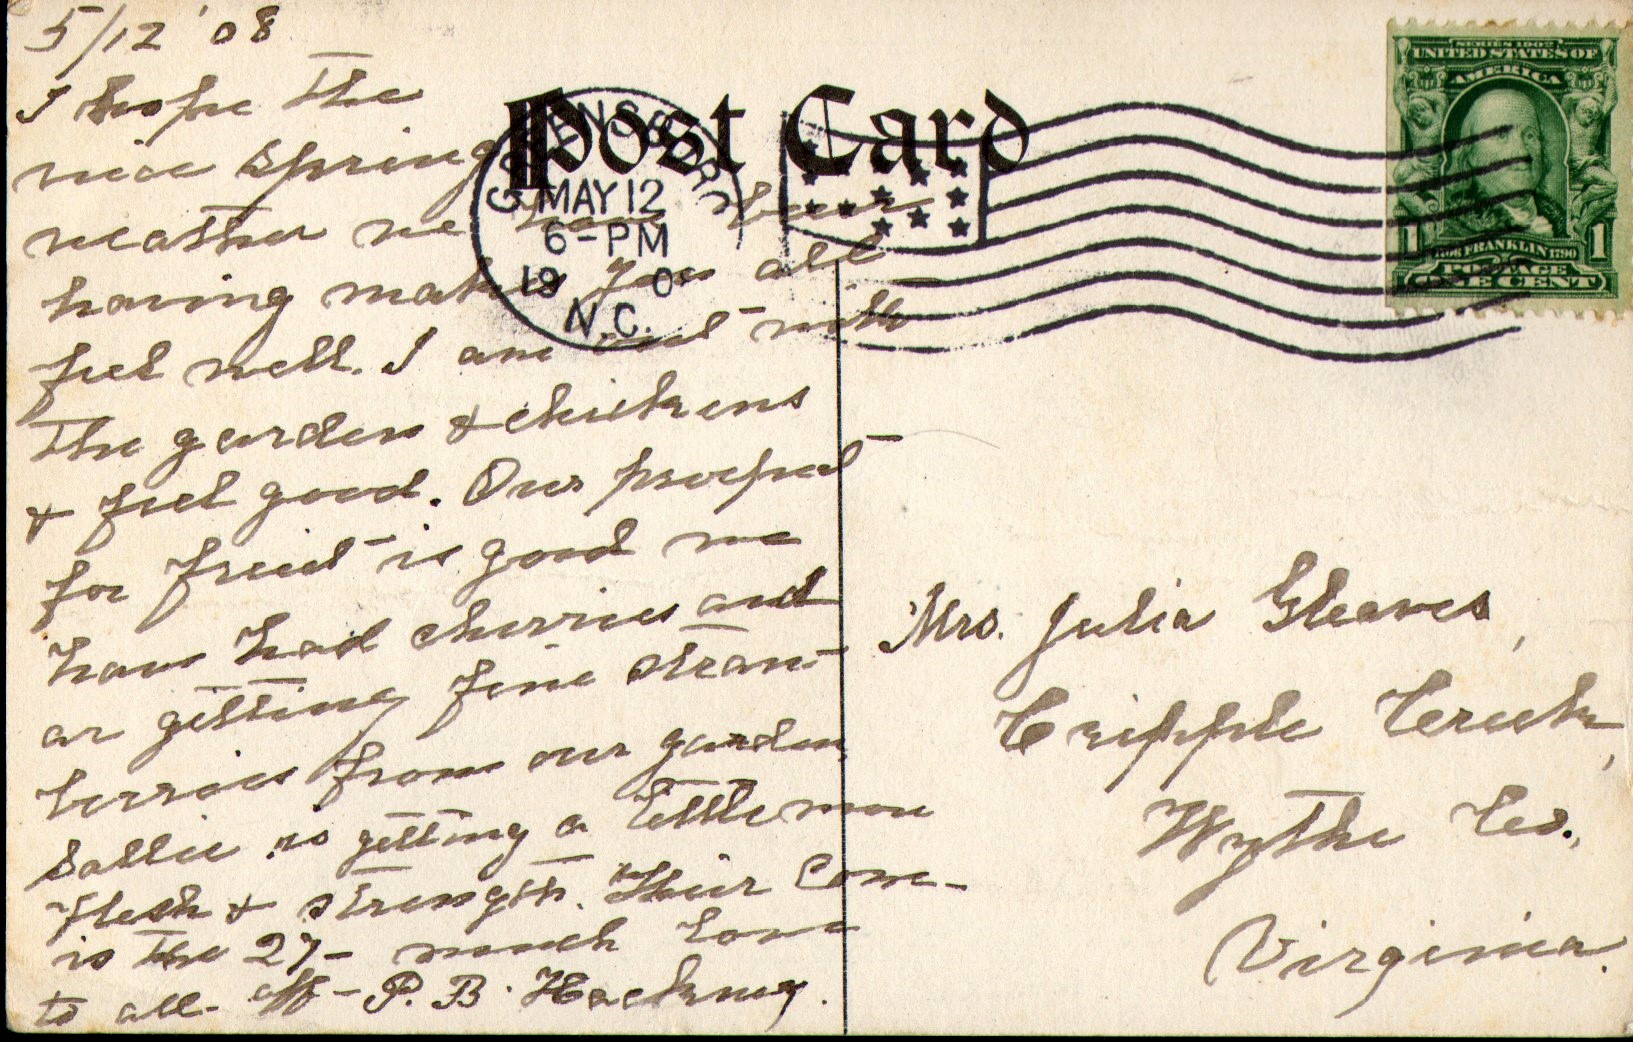 5/12 '08
I hope the
nice Spring
weather we have been
having makes you all
feel well. I am out with
the garden & chickens
& feel good. Our prospect
for fruit is good we
have had cherries and
ar getting fine straw-
berries from our garden,
Sallie is getting a little more
flesh & strength. Their Com-
is the 27- much love
to all- aff- P. B. Hackney.
Post Card
GREENSBORO
MAY 12
6-PM
19 0
N.C.
SERIES 1902
UNITED STATES OF
AMERICA
1 1706 FRANKLIN 1790 1
POSTAGE
ONE CENT
Mrs. Julia Gleaves,
Cripple Creek,
Wythe Co.,
Virginia.